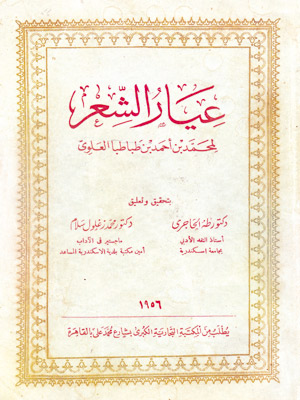 عيار الشعر
لمحمد بن أحمد بن طباطبا العلوي
بتحقيق وتعليق
دكتور طه الحاجري
دكتور محمد زغلول سلام
أستاذ النقد الأدبي
ماجستير في الآداب
بجامعة إسكندرية
أمين مكتبة بلدية الاسكندرية المساعد
١٩٥٦
يطلب من المكتبة التجارية الكبرى بشارع محمد علي بالقاهرة